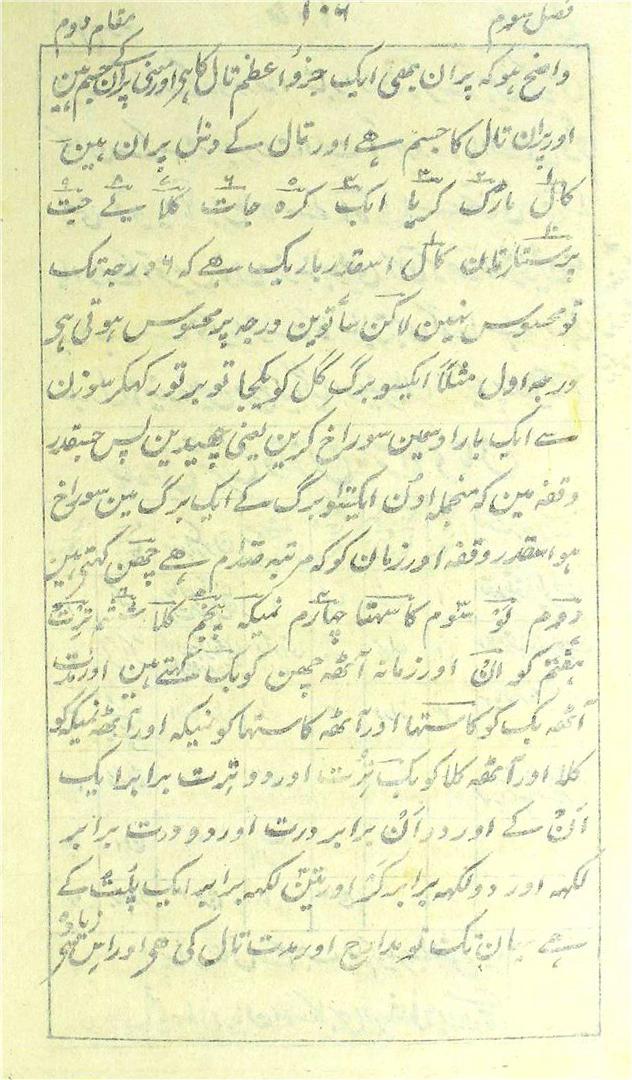 فصل سوم ١٠٦ مقام دوم
واضح ہو کہ پران بھی ایک جزو اعظم تال کا ہی اور معنی پران کے جسم ہین
اور پران تال کا جسم ہے اور تال کے دنل پران ہین
کال مارگ کریا انگ گرہ جات کلا لے جت
پرستار تمان کال اسقدر باریک ہے کہ ٦ درجہ تک
تو محسوس نہین لاکن ساتوین درجہ پر محسوس ہوتی ہی
درجہ اول مثلاً ایکسو برگ گل کو یکجا تو بر تو رکھکر سوزن
سے ایک بار اوسمین سوراخ کرین یعنی چھیدین پس جسقدر
وقفہ مین کہ منجملہ اون ایکسو برگ کے ایک برگ مین سوراخ
ہو اسقدر وقفہ اور زمان کو کہ مرتبہ ہے چھن کہتی ہین
دوم لو سوم کاستھا چہارم نمیکہ پنجم کلا ششم ترت
ہفتم کو ان اور زمانہ آٹھہ چھن کو یک کہتے ہین اور مدت
آٹھہ یک کو کاستھا اور آٹھہ کاستھا کو نمیکہ اور آٹھہ نمیکہ کو
کلا اور آٹھہ کلا کو یک ترت اور دو ترت برابر ایک
ان کے اور دو ان برابر درت اور دو درت برابر
لگھہ اور دو لگھہ برابر گر اور تین لگھہ برابر ایک پلت کے
ہے یہان تک تو مدارج اور مدت تال کی ہی اور اس سے زیادہ